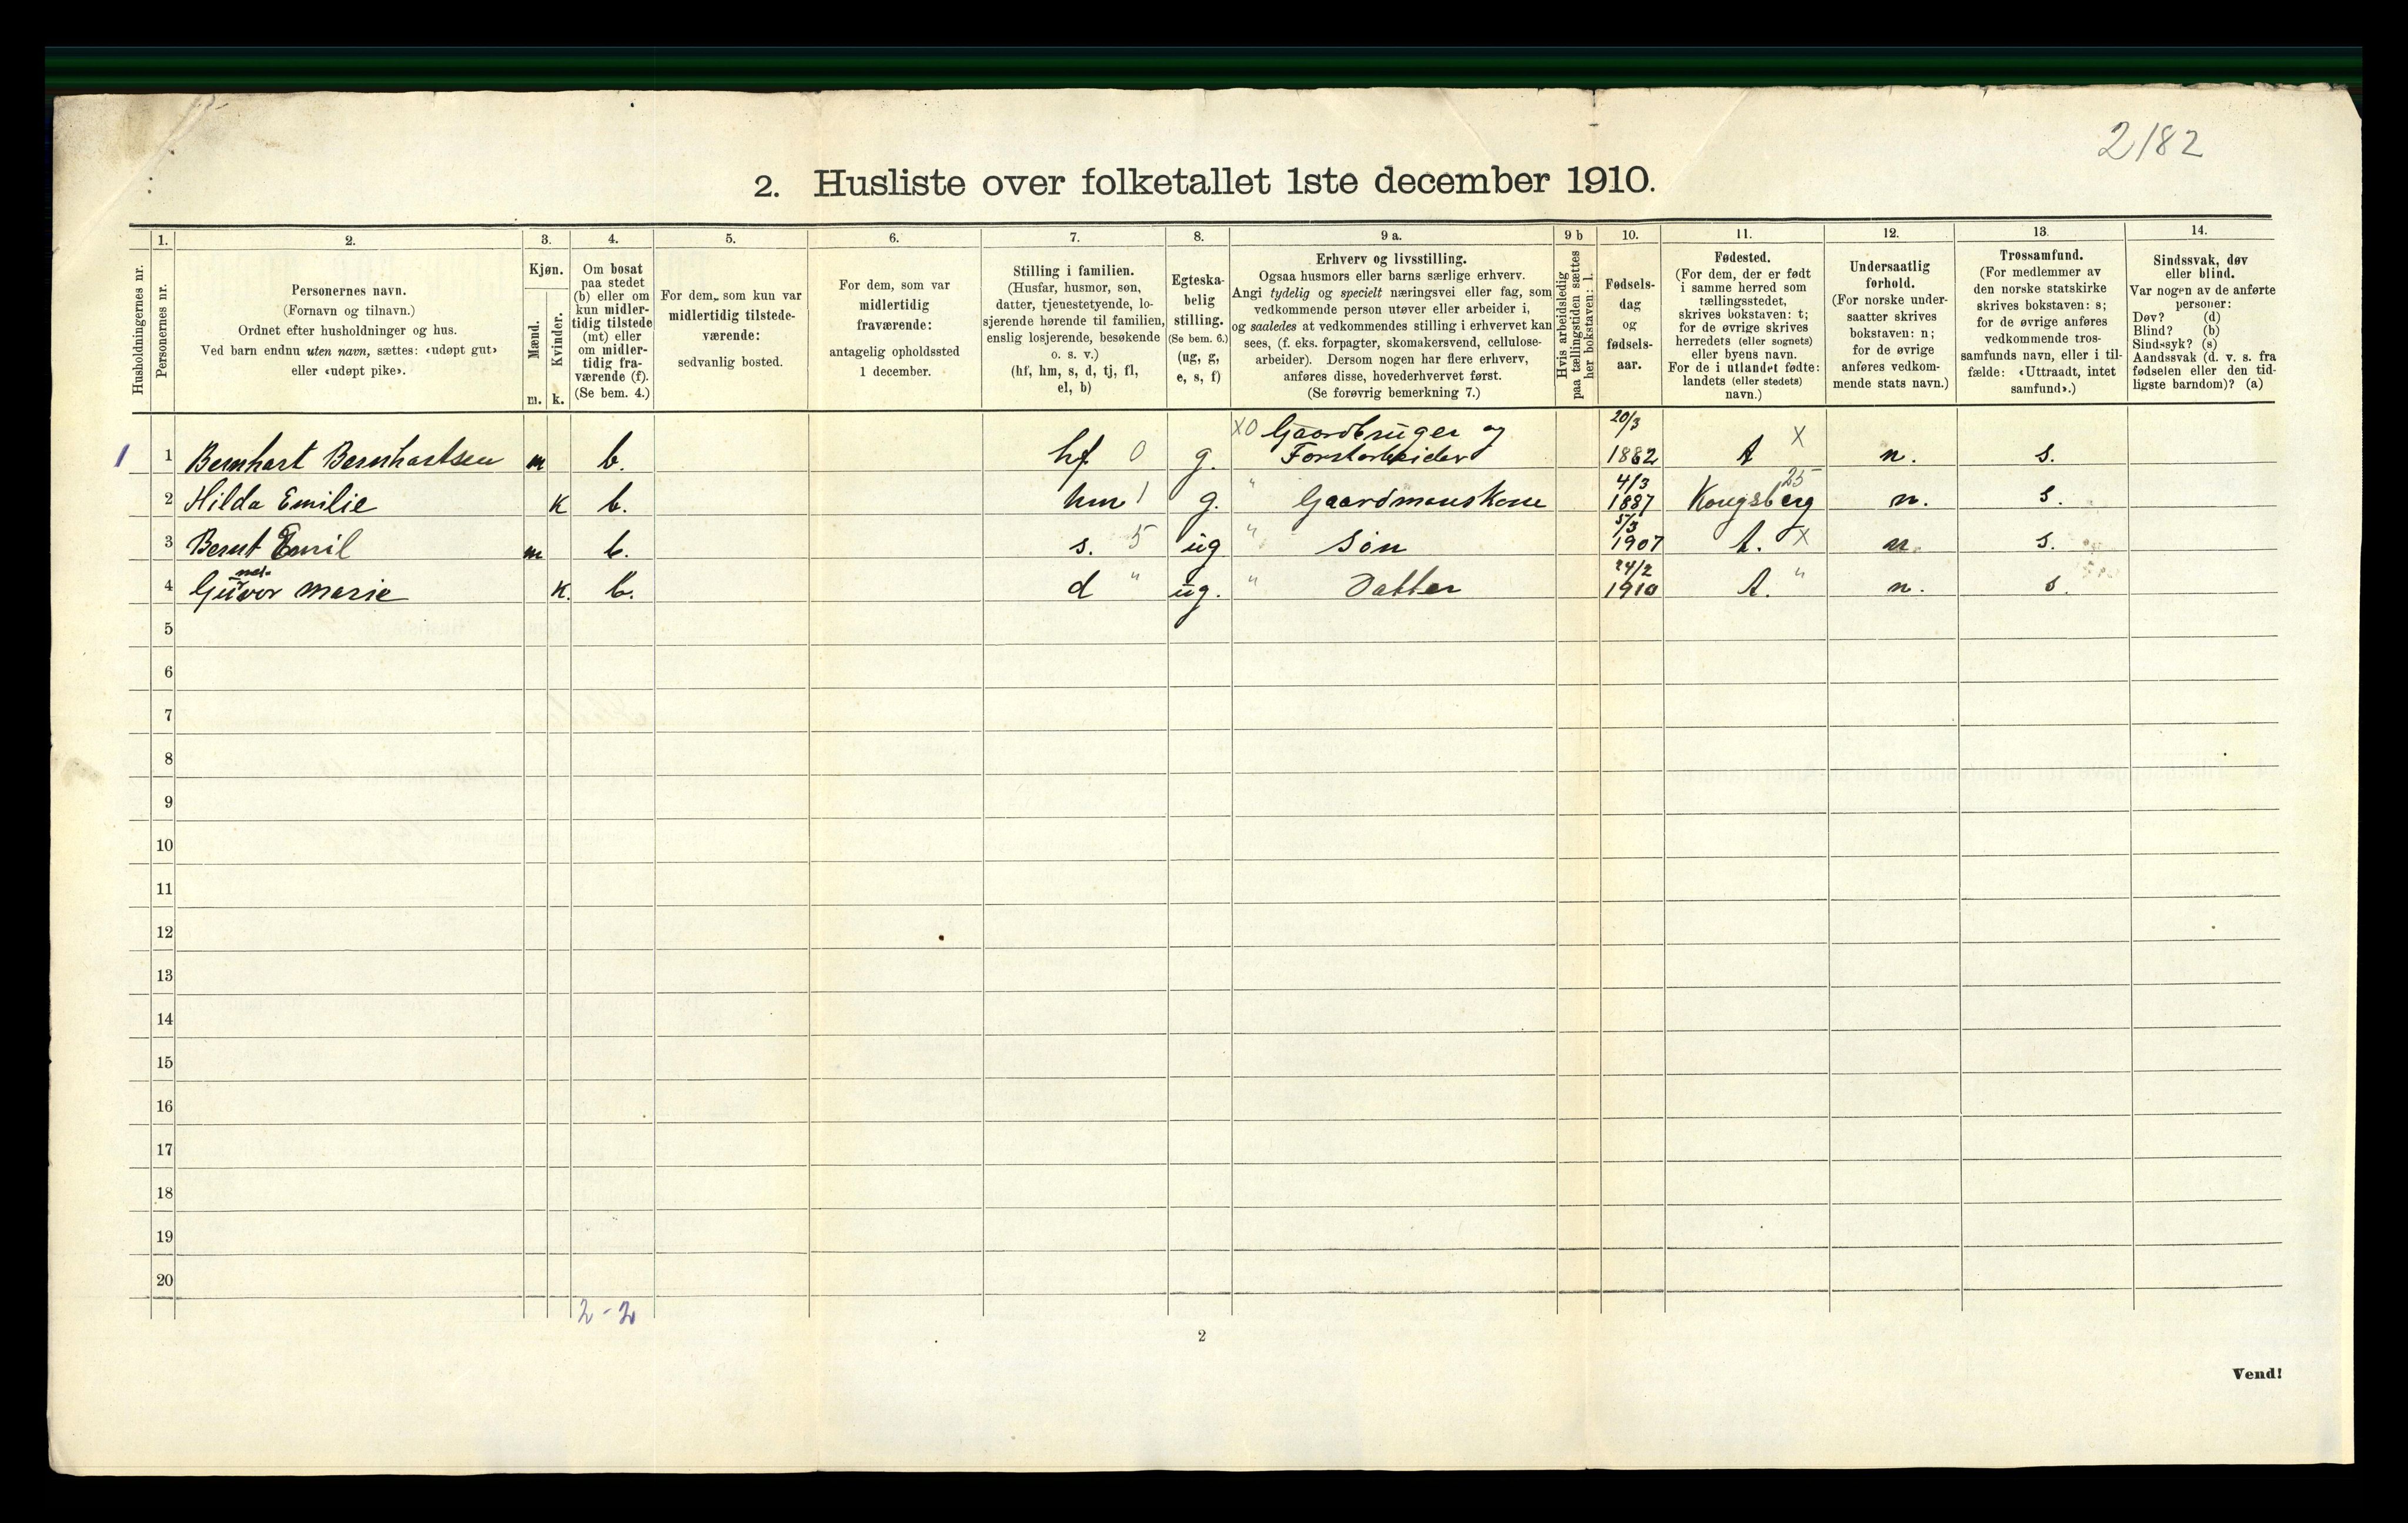 2182
2. Husliste over folketallet 1ste december 1910.
1. 2. 3. 4. 5. 6. 7. 8. 9 a. 9 b 10. 11. 12. 13. 14.
Husholdningernes nr.
Personernes nr.
Personernes navn.
(Fornavn og tilnavn.)
Ordnet efter husholdninger og hus.
Ved barn endnu uten navn, sættes: «udøpt gut»
eller «udøpt pike».
Kjøn.
Mænd.
Kvinder.
m. k.
Om bosat
paa stedet
(b) eller om
kun midler-
tidig tilstede
(mt) eller
om midler-
tidig fra-
værende (f).
(Se bem. 4.)
For dem, som kun var
midlertidig tilstede-
værende:
sedvanlig bosted.
For dem, som var
midlertidig
fraværende:
antagelig opholdssted
1 december.
Stilling i familien.
(Husfar, husmor, søn,
datter, tjenestetyende, lo-
sjerende hørende til familien,
enslig losjerende, besøkende
o. s. v.)
(hf, hm, s, d, tj, fl,
el, b)
Egteska-
belig
stilling.
(Se bem. 6.)
(ug, g,
e, s, f)
Erhverv og livsstilling.
Ogsaa husmors eller barns særlige erhverv.
Angi tydelig og specielt næringsvei eller fag, som
vedkommende person utøver eller arbeider i,
og saaledes at vedkommendes stilling i erhvervet kan
sees, (f. eks. forpagter, skomakersvend, cellulose-
arbeider). Dersom nogen har flere erhverv,
anføres disse, hovederhvervet først.
(Se forøvrig bemerkning 7.)
Hvis arbeidsledig
paa tællingstiden sættes
her bokstaven: l.
Fødsels-
dag
og
fødsels-
aar.
Fødested.
(For dem, der er født
i samme herred som
tællingsstedet,
skrives bokstaven: t;
for de øvrige skrives
herredets (eller sognets)
eller byens navn.
For de i utlandet fødte:
landets (eller stedets)
navn.)
Undersaatlig
forhold.
(For norske under-
saatter skrives
bokstaven: n;
for de øvrige
anføres vedkom-
mende stats navn.)
Trossamfund.
(For medlemmer av
den norske statskirke
skrives bokstaven: s;
for de øvrige anføres
vedkommende tros-
samfunds navn, eller i til-
fælde: «Uttraadt, intet
samfund».)
Sindssvak, døv
eller blind.
Var nogen av de anførte
personer:
Døv? (d)
Blind? (b)
Sindssyk? (s)
Aandssvak (d. v. s. fra
fødselen eller den tid-
ligste barndom)? (a)
1 1 Bernhart Bernhartsen m b. hf 0 g. X0 Gaardbruger og Forstarbeider 20/3 1882 t X n. s.
2 Hilda Emilie K b. hm 1 g. " Gaardmanskone 4/3 1887 Kongsberg 25 n. s.
3 Bernt Emil m b. s. 5 ug " Søn 5/3 1907 t. X n. s.
4 Guvor Marie K. b. d " ug. " Datter 24/2 1910 t. " n. s.
5
6
7
8
9
10
11
12
13
14
15
16
17
18
19
20
2-2
2
Vend!